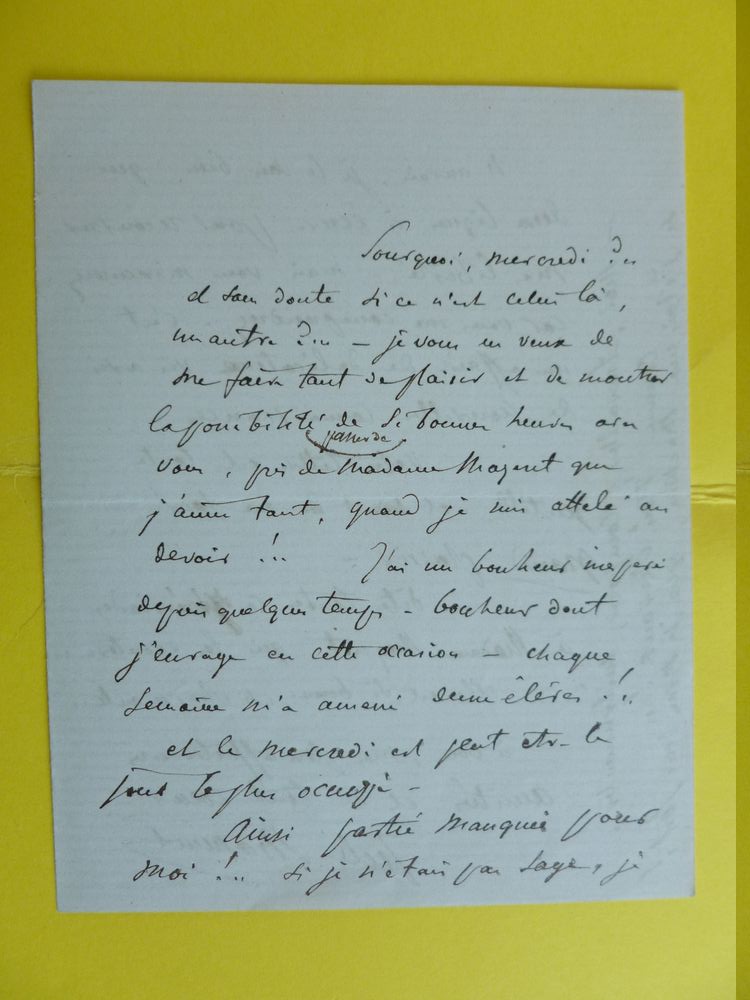 Pourquoi, mercredi ?..
et sans doute si ce n'est celui là,
un autre ?.. — je vous en veux de
me faire tant de plaisir et de montrer
la possibilité de si bonnes heures avec
passer de
vous, près de Madame que
j'aime tant, quand je suis attelé au
devoir !.. J'ai un bonheur inespéré
depuis quelque temps - bonheur dont
j'enrage en cette occasion — chaque
semaine m'a amené deux élèves !..
et le mercredi est peut etre le
jour le plus occupé -
Ainsi partie manquée pour
moi !.. si je n'étais pas sage, je